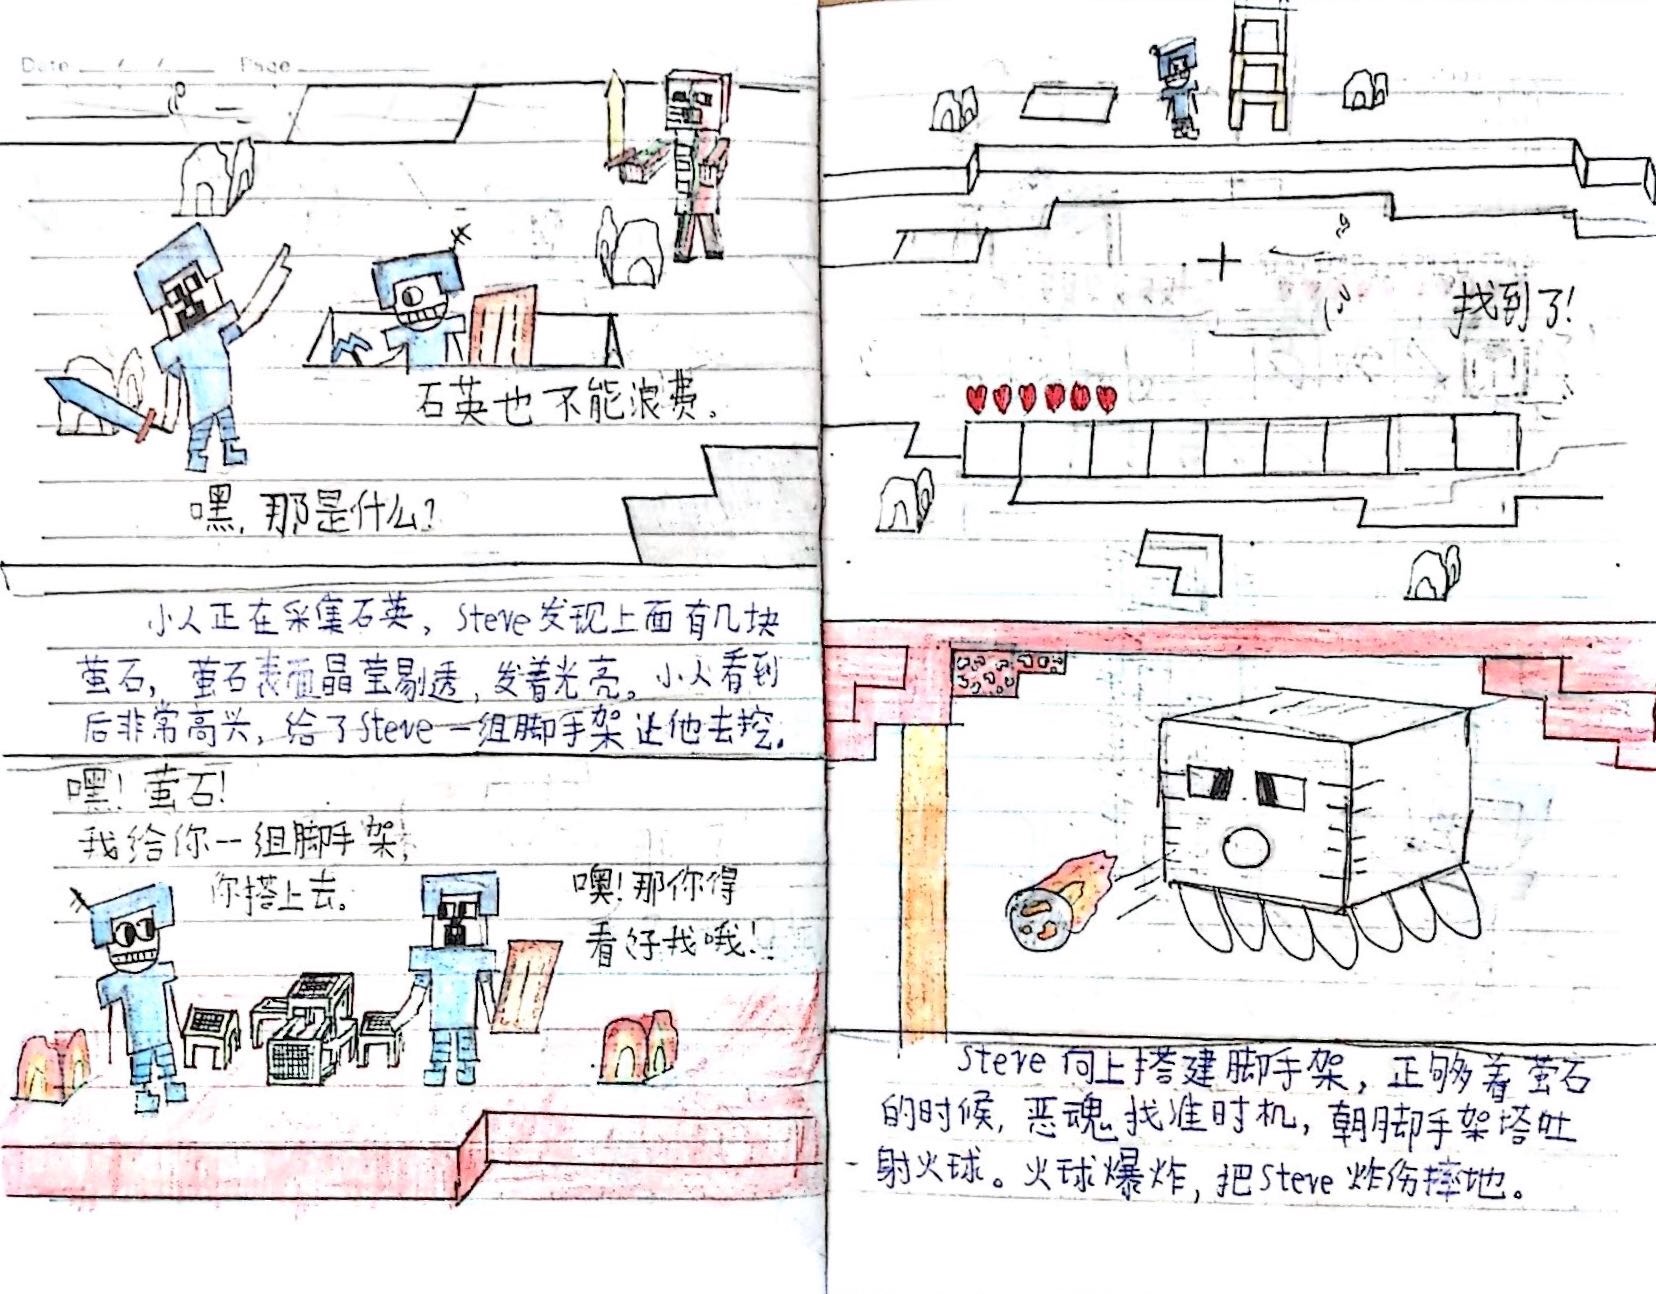 Date / / Page
石英也不能浪费。
嘿,那是什么?
小人正在采集石英,Steve发现上面有几块
萤石,萤石表面晶莹剔透,发着光亮。小人看到
后非常高兴,给了Steve一组脚手架让他去挖。
嘿!萤石!
我给你一组脚手架,
你搭上去。
噢!那你得
看好我哦!
找到了!
Steve向上搭建脚手架,正够着萤石
的时候,恶魂找准时机,朝脚手架塔吐
射火球。火球爆炸,把Steve炸伤摔地。